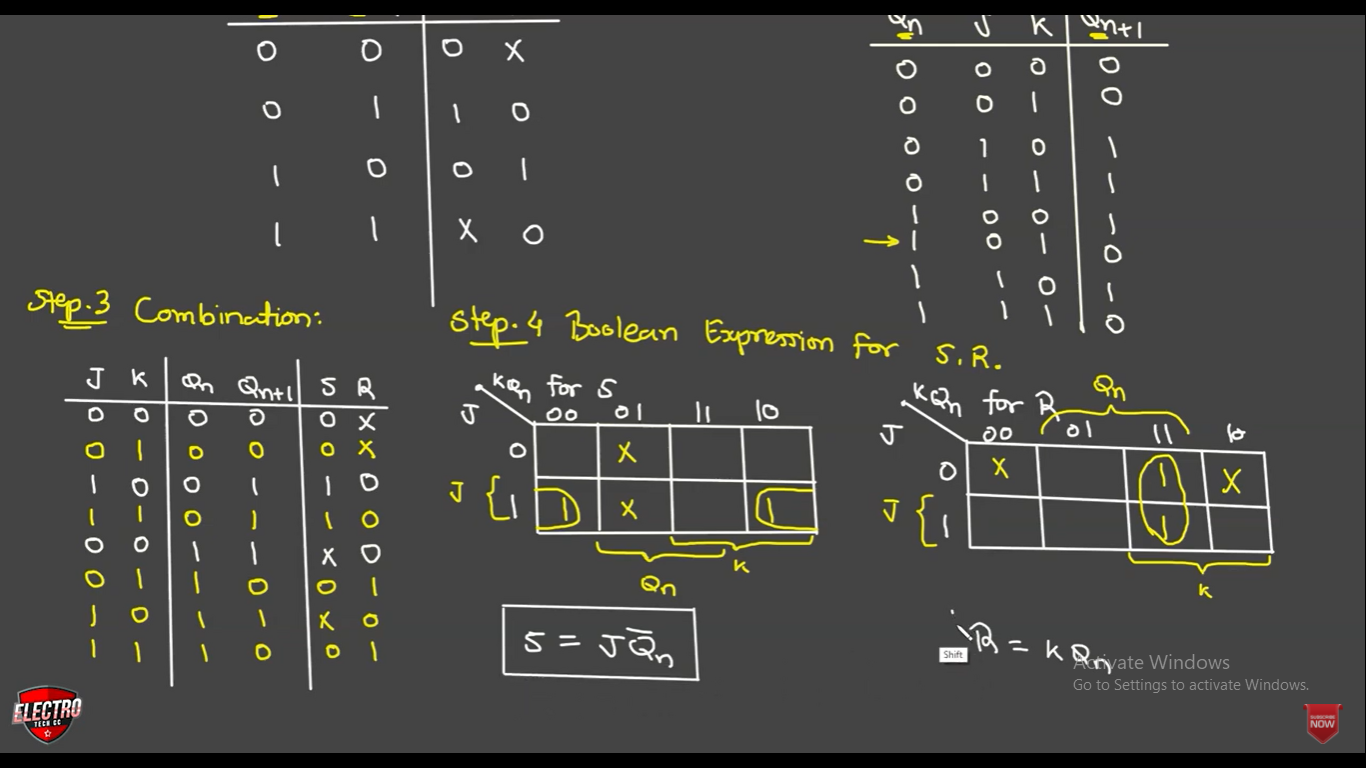 Qn J K Qn+1
0 0 0 X
0 1 1 0
1 0 0 1
1 1 X 0
0 0 0 0
0 0 1 0
0 1 0 1
0 1 1 1
1 0 0 1
→ 1 0 1 0
1 1 0 1
1 1 1 0
Step.3 Combination:
J K Qn Qn+1 S R
0 0 0 0 0 X
0 1 0 0 0 X
1 0 0 1 1 0
1 1 0 1 1 0
0 0 1 1 X 0
0 1 1 0 0 1
1 0 1 1 X 0
1 1 1 0 0 1
Step.4 Boolean Expression for S.R.
KQn for S
J 00 01 11 10
0 X
J { 1 1 X 1
K
Qn
S = JQ̅n
Qn
KQn for R
J 00 01 11 10
0 X 1 X
J { 1 1
K
R = KQn
Shift
Activate Windows
Go to Settings to activate Windows.
ELECTRO
TECH CC
SUBSCRIBE
NOW